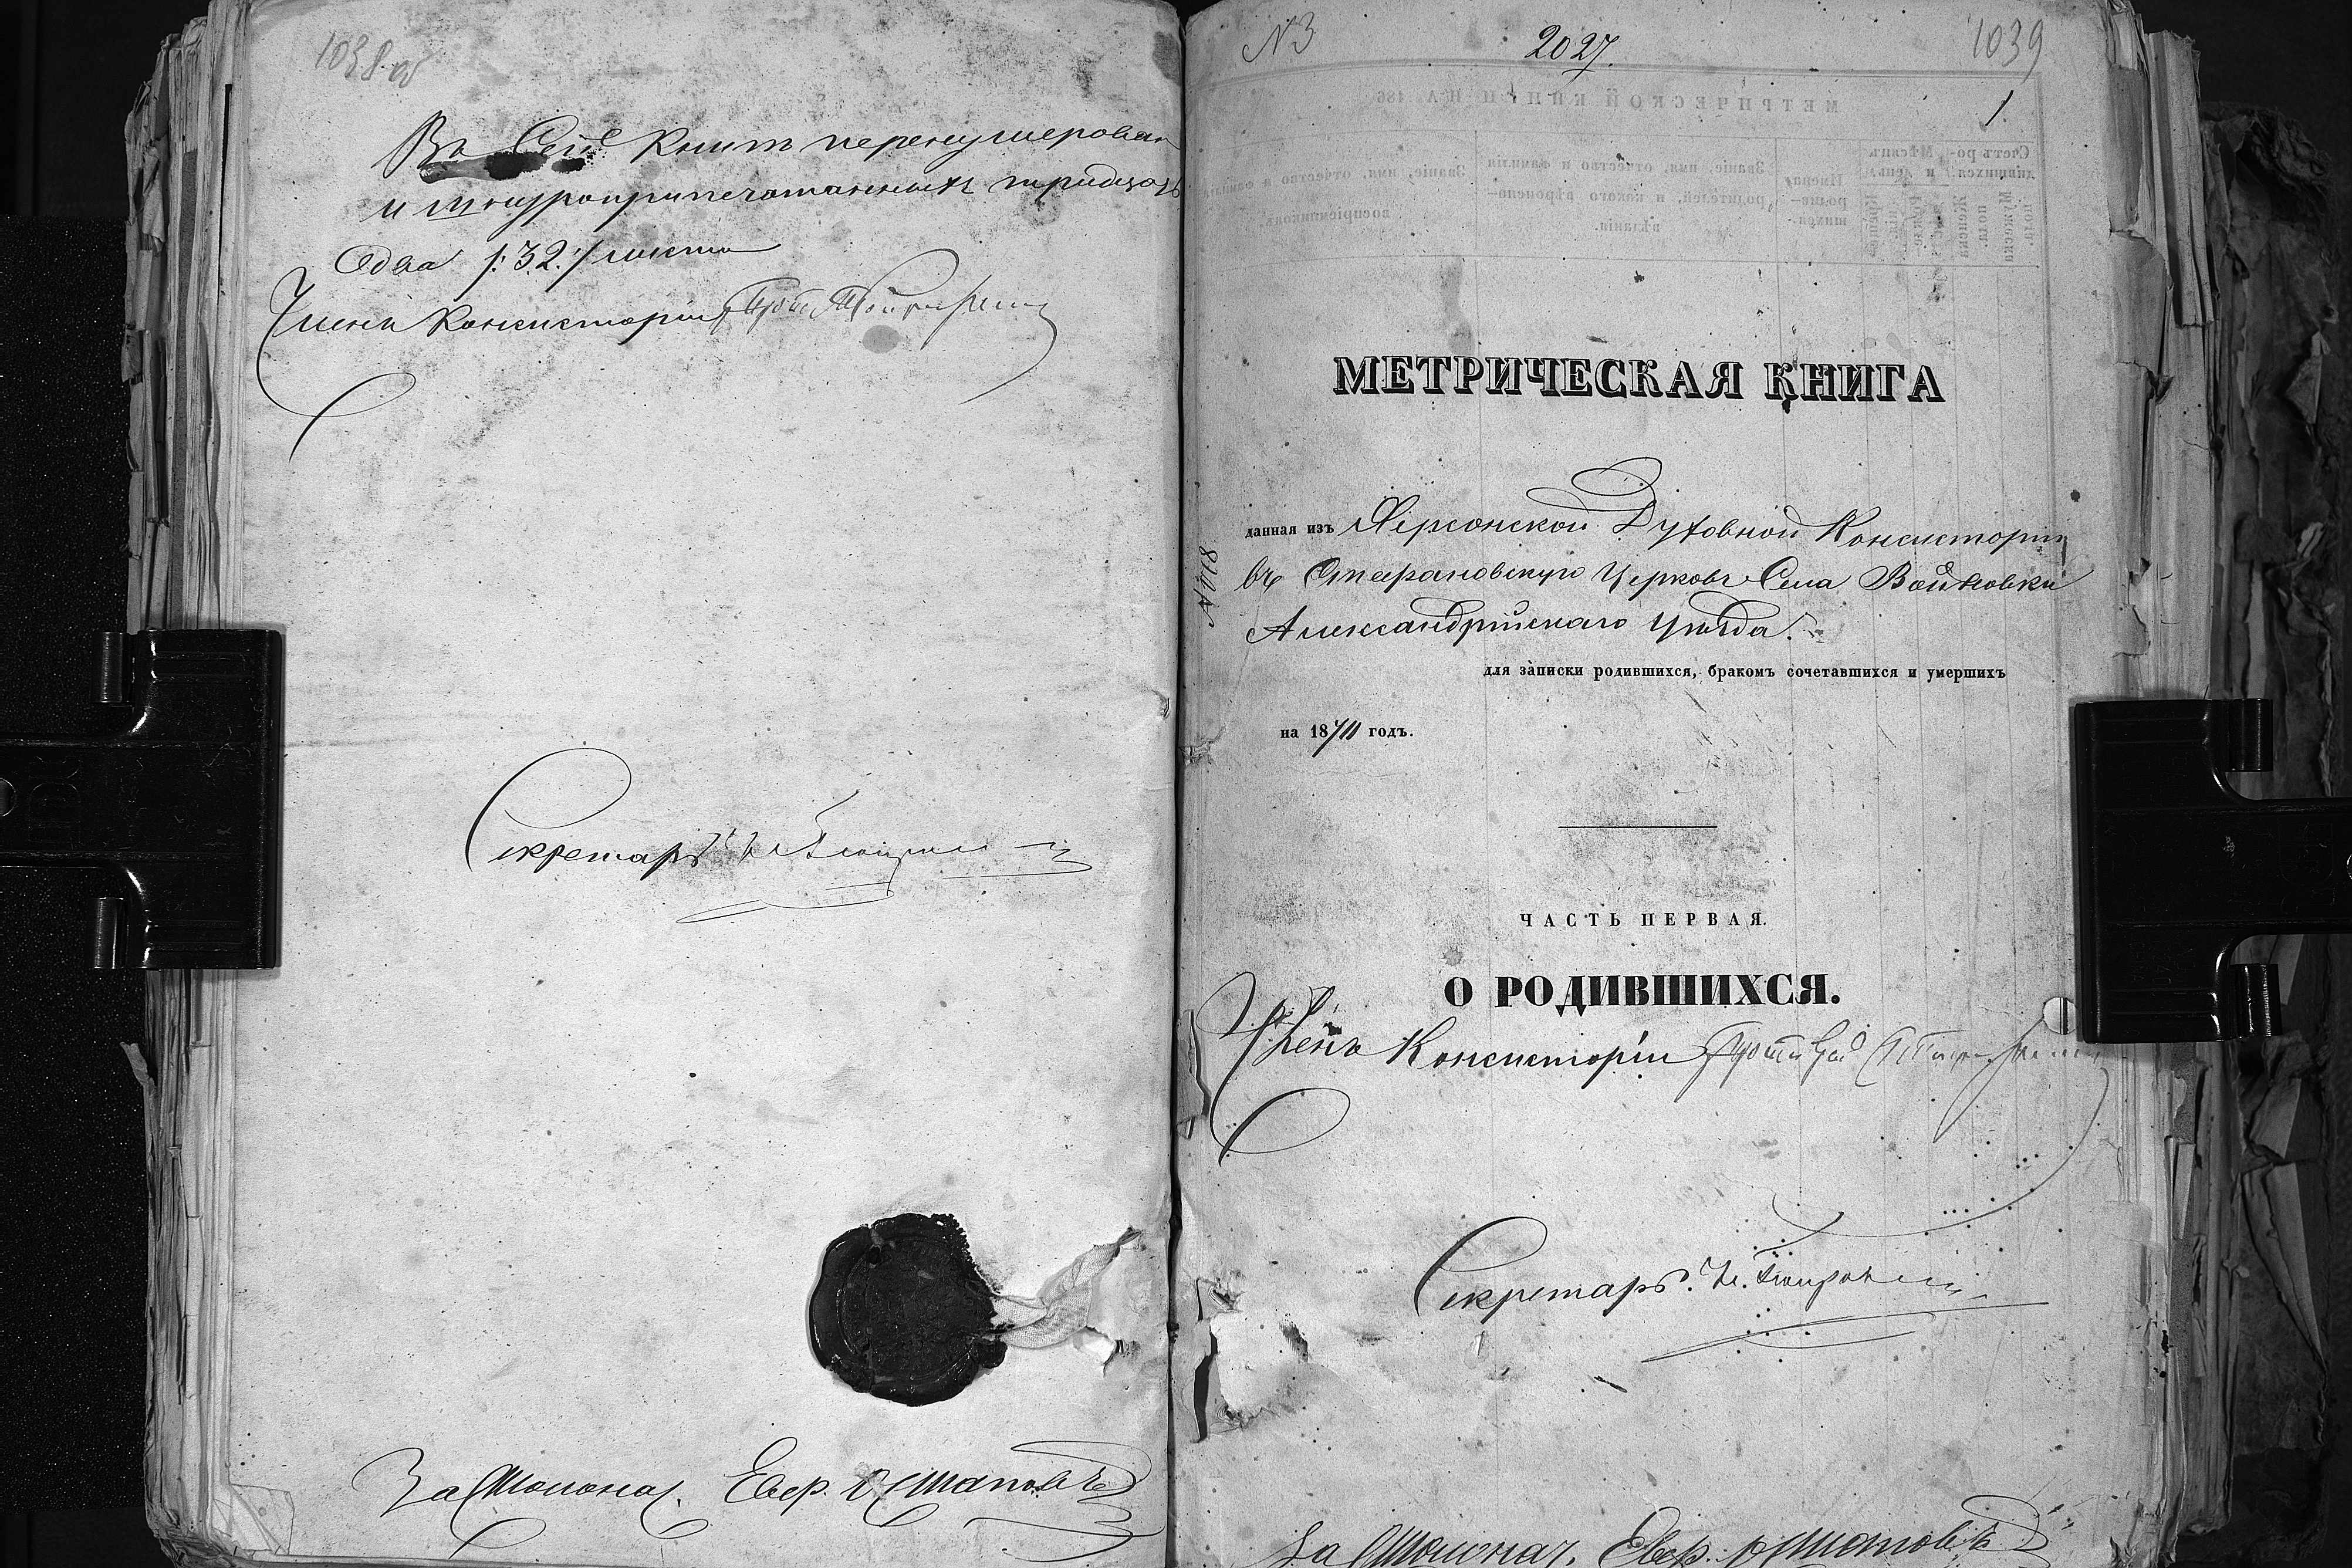 1038 об
Въ Сей Книгѣ перенумерован
и шнуроприпечатанныхъ тридцать
Два /:32:/ листа
Членъ Консисторіи
Секретарь
За Столонач. Евгр. Остаповъ
N3
2027.
1039
1
МЕТРИЧЕСКОЙ КНИГИ НА 186
Счетъ ро-
дившихся.
Мужеска
пола.
Женска
пола.
Мѣсяцъ
и день.
Имена
родив-
шихся.
Званіе, имя, отчество и фамилія
родителей, и какого вѣроиспо-
вѣданія.
Званіе, имя, отчество и фамилія
воспріемниковъ.
МЕТРИЧЕСКАЯ КНИГА
данная изъ Херсонской Духовной Консисторіи
въ Стефановскую Церковь Села Войновки
Александрійскаго Уѣзда.
для записки родившихся, бракомъ сочетавшихся и умершихъ
на 18 годъ.
ЧАСТЬ ПЕРВАЯ.
О РОДИВШИХСЯ.
Членъ Консисторіи Протоіерей
Секретарь
За Столонач. Евгр. Остаповъ